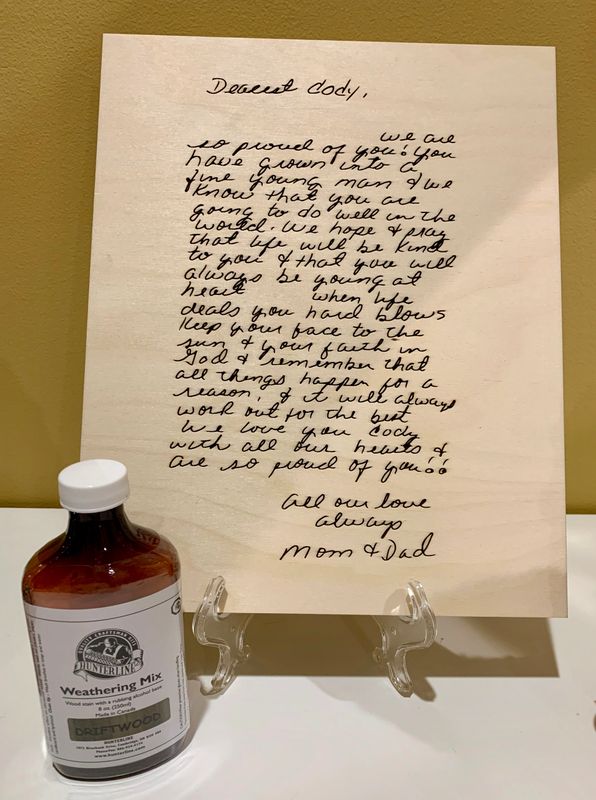 Dearest Cody,
we are
so proud of you! You
have grown into a
fine young man & we
know that you are
going to do well in the
world. We hope & pray
that life will be kind
to you & that you will
always be young at
heart when life
deals you hard blows
keep your face to the
sun & your faith in
God & remember that
all things happen for a
reason, & it will always
work out for the best
We love you Cody
with all our hearts &
are so proud of you!!
all our love
always
Mom & Dad
HUNTERLINE
Weathering Mix
Wood stain with a rubbing alcohol base
8 oz. (250ml)
Made in Canada
DRIFTWOOD
HUNTERLINE
www.hunterline.com